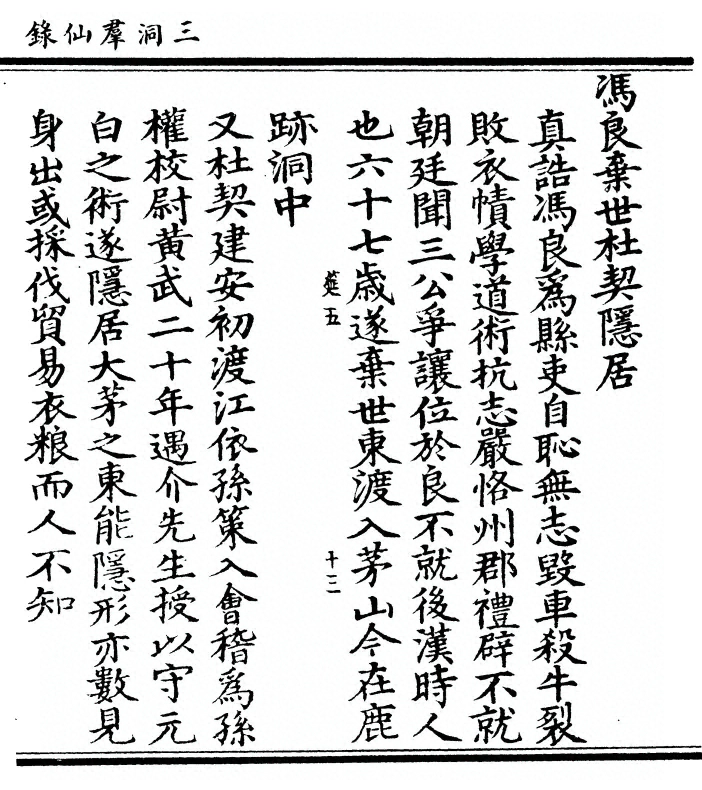 三洞羣仙錄
馮良棄世杜契隱居
真誥馮良為縣吏自恥無志毀車殺牛裂
敗衣幘學道術抗志嚴恪州郡禮辟不就
朝廷聞三公爭讓位於良不就後漢時人
也六十七歲遂棄世東渡入茅山今在鹿
筵五
十三
跡洞中
又杜契建安初渡江依孫策入會稽為孫
權校尉黃武二十年遇介先生授以守元
白之術遂隱居大茅之東能隱形亦數見
身出或採伐貿易衣粮而人不知